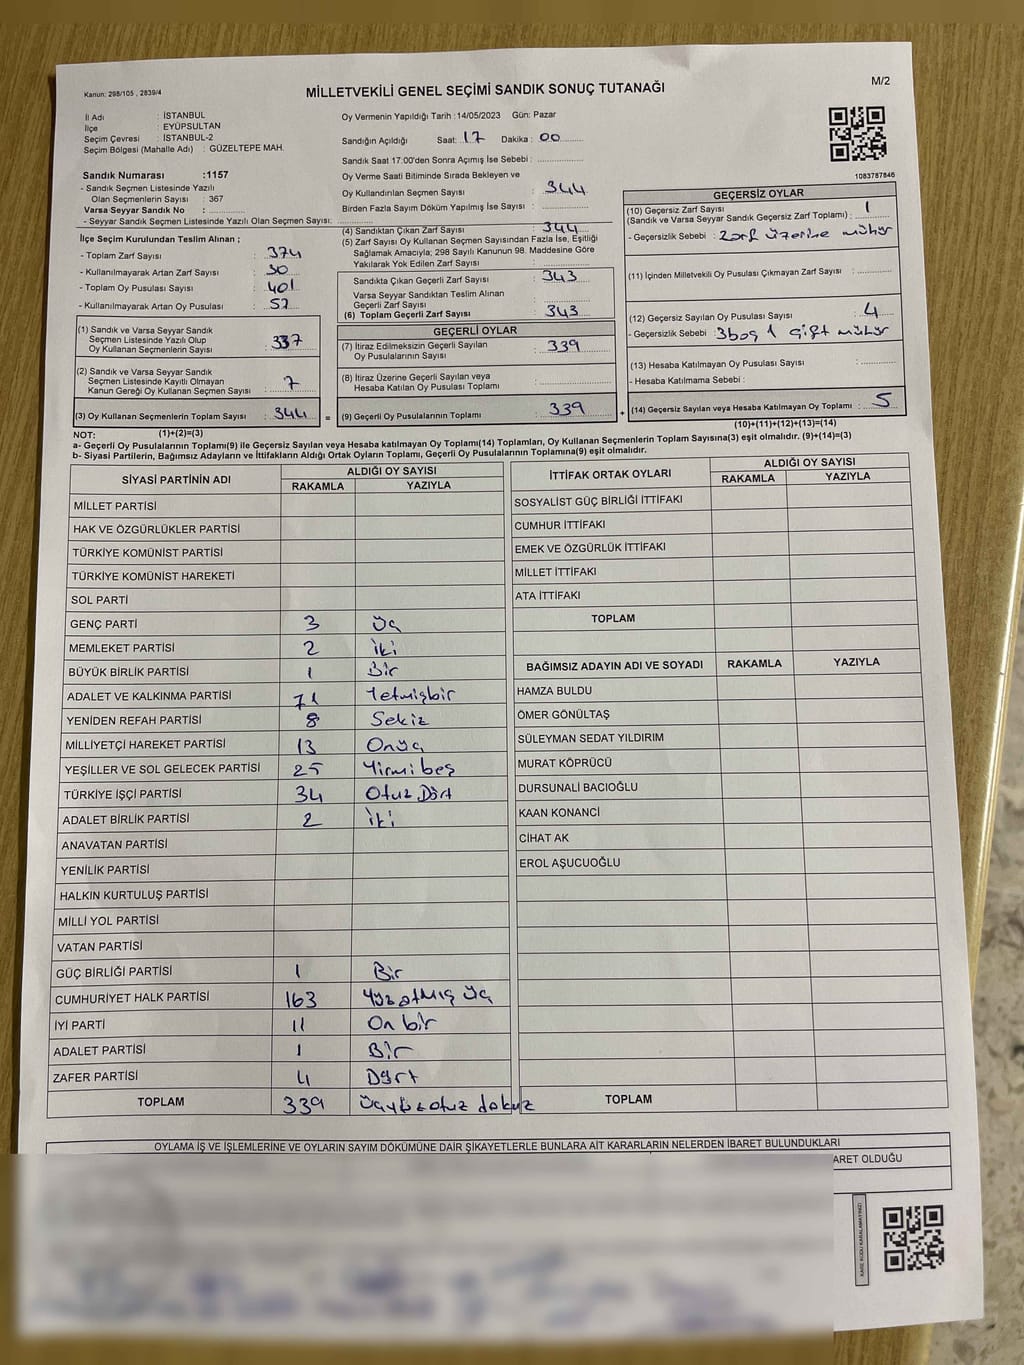 Kanun: 298/105 , 2839/4
MİLLETVEKİLİ GENEL SEÇİMİ SANDIK SONUÇ TUTANAĞI
M/2
İl Adı : İSTANBUL
İlçe : EYÜPSULTAN
Seçim Çevresi : İSTANBUL-2
Seçim Bölgesi (Mahalle Adı) : GÜZELTEPE MAH.
Oy Vermenin Yapıldığı Tarih :14/05/2023 Gün: Pazar
Sandığın Açıldığı Saat: 17 Dakika : 00
Sandık Saat 17:00'den Sonra Açımış İse Sebebi :
Oy Verme Saati Bitiminde Sırada Bekleyen ve
Oy Kullandırılan Seçmen Sayısı : 344
Birden Fazla Sayım Döküm Yapılmış İse Sayısı :
Sandık Numarası :1157
- Sandık Seçmen Listesinde Yazılı
Olan Seçmenlerin Sayısı : 367
Varsa Seyyar Sandık No :
- Seyyar Sandık Seçmen Listesinde Yazılı Olan Seçmen Sayısı:
İlçe Seçim Kurulundan Teslim Alınan ;
- Toplam Zarf Sayısı : 374
- Kullanılmayarak Artan Zarf Sayısı : 30
- Toplam Oy Pusulası Sayısı : 401
- Kullanılmayarak Artan Oy Pusulası : 57
(1) Sandık ve Varsa Seyyar Sandık
Seçmen Listesinde Yazılı Olup
Oy Kullanan Seçmenlerin Sayısı : 337
(2) Sandık ve Varsa Seyyar Sandık
Seçmen Listesinde Kayıtlı Olmayan
Kanun Gereği Oy Kullanan Seçmen Sayısı : 7
(3) Oy Kullanan Seçmenlerin Toplam Sayısı : 344 =
(4) Sandıktan Çıkan Zarf Sayısı : 344
(5) Zarf Sayısı Oy Kullanan Seçmen Sayısından Fazla İse, Eşitliği
Sağlamak Amacıyla; 298 Sayılı Kanunun 98. Maddesine Göre
Yakılarak Yok Edilen Zarf Sayısı :
Sandıkta Çıkan Geçerli Zarf Sayısı : 343
Varsa Seyyar Sandıktan Teslim Alınan
Geçerli Zarf Sayısı :
(6) Toplam Geçerli Zarf Sayısı : 343
GEÇERLİ OYLAR
(7) İtiraz Edilmeksizin Geçerli Sayılan
Oy Pusulasının Sayısı : 339
(8) İtiraz Üzerine Geçerli Sayılan veya
Hesaba Katılan Oy Pusulası Toplamı :
(9) Geçerli Oy Pusulalarının Toplamı : 339 +
1083787846
GEÇERSİZ OYLAR
(10) Geçersiz Zarf Sayısı
(Sandık ve Varsa Seyyar Sandık Geçersiz Zarf Toplamı) : 1
- Geçersizlik Sebebi : Zarf üzerine mühür
(11) İçinden Milletvekili Oy Pusulası Çıkmayan Zarf Sayısı :
(12) Geçersiz Sayılan Oy Pusulası Sayısı : 4
- Geçersizlik Sebebi : 3 boş 1 çift mühür
(13) Hesaba Katılmayan Oy Pusulası Sayısı :
- Hesaba Katılmama Sebebi :
(14) Geçersiz Sayılan veya Hesaba Katılmayan Oy Toplamı : 5
NOT: (1)+(2)=(3)
(10)+(11)+(12)+(13)=(14)
a- Geçerli Oy Pusulaların Toplamı(9) ile Geçersiz Sayılan veya Hesaba katılmayan Oy Toplamı(14) Toplamları, Oy Kullanan Seçmenlerin Toplam Sayısına(3) eşit olmalıdır. (9)+(14)=(3)
b- Siyasi Partilerin, Bağımsız Adayların ve İttifakların Aldığı Ortak Oyların Toplamı, Geçerli Oy Pusulalarının Toplamına(9) eşit olmalıdır.
SİYASİ PARTİNİN ADI ALDIĞI OY SAYISI
RAKAMLA YAZIYLA
MİLLET PARTİSİ
HAK VE ÖZGÜRLÜKLER PARTİSİ
TÜRKİYE KOMÜNİST PARTİSİ
TÜRKİYE KOMÜNİST HAREKETİ
SOL PARTİ
GENÇ PARTİ 3 Üç
MEMLEKET PARTİSİ 2 İki
BÜYÜK BİRLİK PARTİSİ 1 Bir
ADALET VE KALKINMA PARTİSİ 71 Yetmişbir
YENİDEN REFAH PARTİSİ 8 Sekiz
MİLLİYETÇİ HAREKET PARTİSİ 13 Onüç
YEŞİLLER VE SOL GELECEK PARTİSİ 25 Yirmibeş
TÜRKİYE İŞÇİ PARTİSİ 34 Otuz Dört
ADALET BİRLİK PARTİSİ 2 İki
ANAVATAN PARTİSİ
YENİLİK PARTİSİ
HALKIN KURTULUŞ PARTİSİ
MİLLİ YOL PARTİSİ
VATAN PARTİSİ
GÜÇ BİRLİĞİ PARTİSİ 1 Bir
CUMHURİYET HALK PARTİSİ 163 Yüzatmış Üç
İYİ PARTİ 11 On bir
ADALET PARTİSİ 1 Bir
ZAFER PARTİSİ 4 Dört
TOPLAM 339 Üçyüzotuz dokuz
İTTİFAK ORTAK OYLARI ALDIĞI OY SAYISI
RAKAMLA YAZIYLA
SOSYALİST GÜÇ BİRLİĞİ İTTİFAKI
CUMHUR İTTİFAKI
EMEK VE ÖZGÜRLÜK İTTİFAKI
MİLLET İTTİFAKI
ATA İTTİFAKI
TOPLAM
BAĞIMSIZ ADAYIN ADI VE SOYADI RAKAMLA YAZIYLA
HAMZA BULDU
ÖMER GÖNÜLTAŞ
SÜLEYMAN SEDAT YILDIRIM
MURAT KÖPRÜCÜ
DURSUNALİ BACIOĞLU
KAAN KONANCİ
CİHAT AK
EROL AŞUCUOĞLU
TOPLAM
OYLAMA İŞ VE İŞLEMLERİNE VE OYLARIN SAYIM DÖKÜMÜNE DAİR ŞİKAYETLERLE BUNLARA AİT KARARLARIN NELERDEN İBARET BULUNDUKLARI
ARET OLDUĞU
KARE KODU KARALAMAYINIZ!